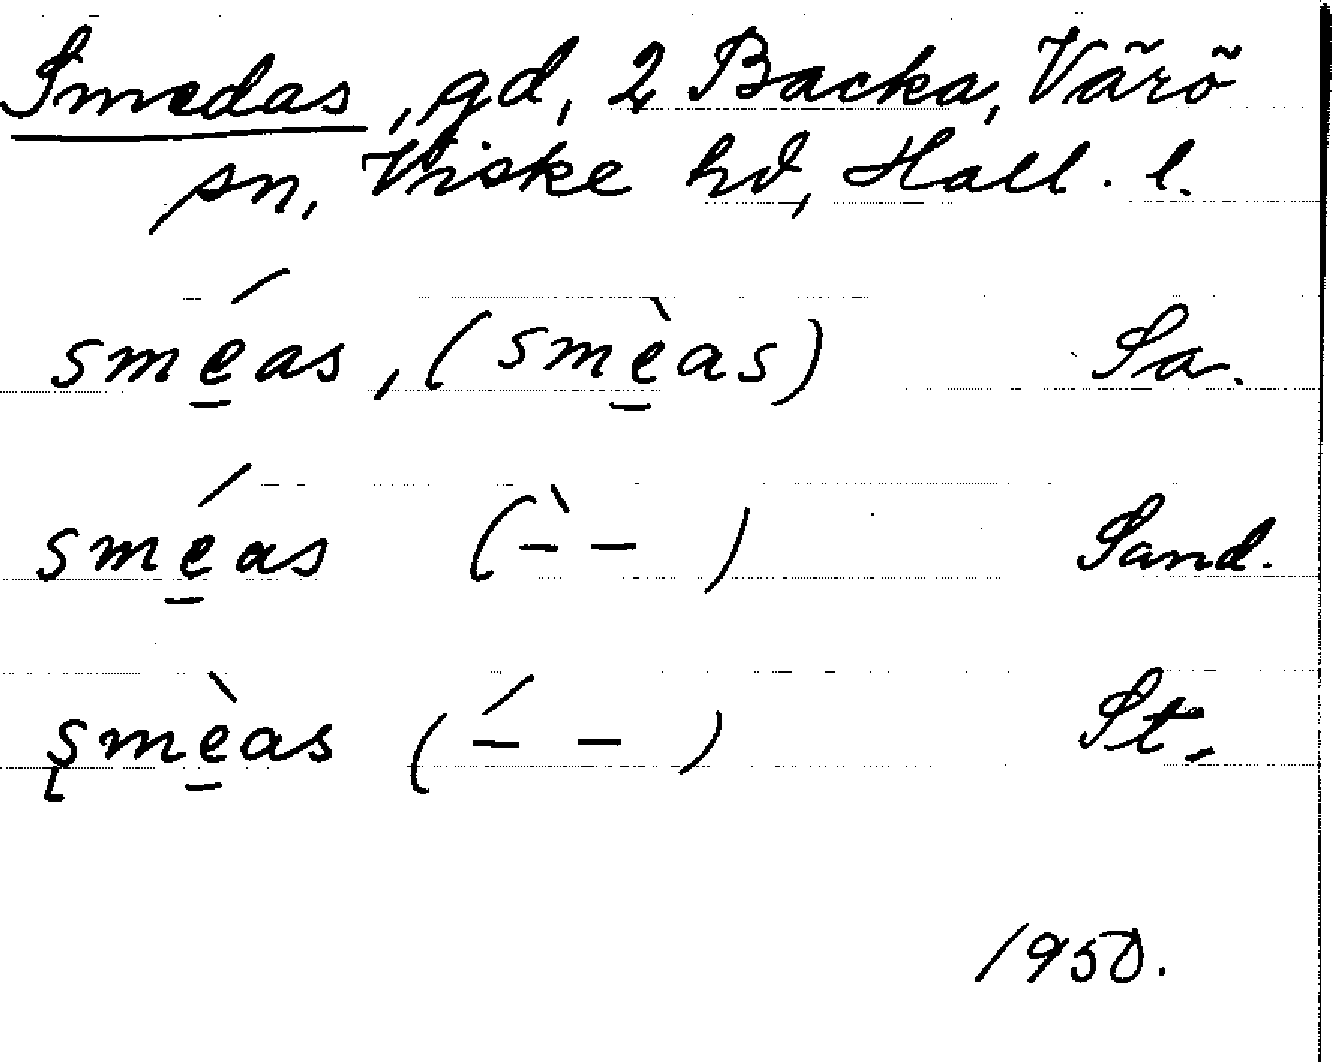 Smedas, gd, 2 Backa, Värö
sn, Viske hd, Hall. l.
smé̱as, (smè̱as) Sa.
smé̱as (-̀ - ) Sand.
smè̱as (-́ - ) St.
1950.